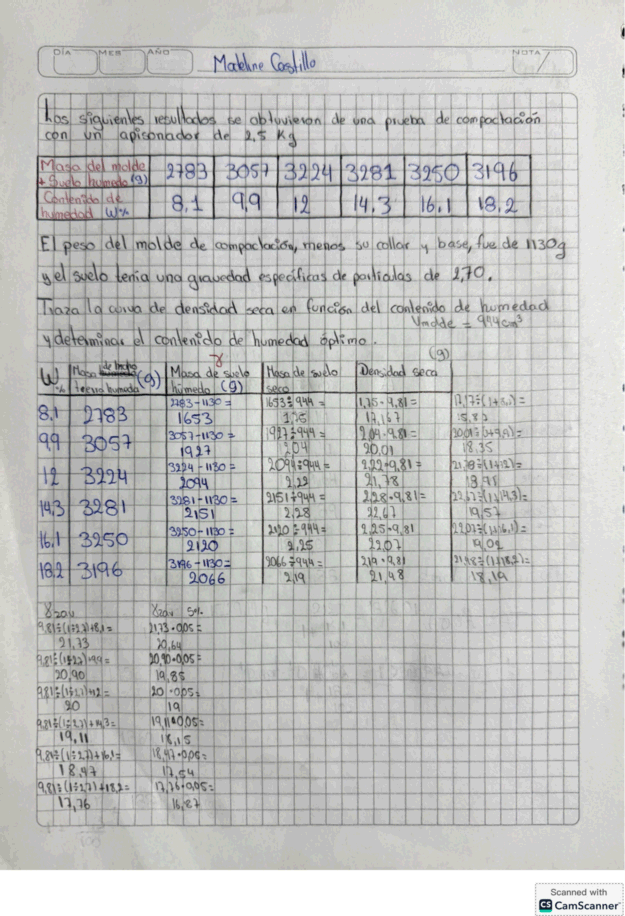 DÍA MES AÑO Madeline Castillo NOTA
Los siguientes resultados se obtuvieron de una prueba de compactación
con un apisonador de 2,5 Kg
Masa del molde + Suelo humedo (g) 2783 3057 3224 3281 3250 3196
Contenido de humedad W% 8.1 9,9 12 14.3 16.1 18.2
El peso del molde de compactación, menos su collar y base, fue de 1130g
y el suelo tenía una gravedad específicas de particulas de 2,70.
Traza la curva de densidad seca en función del contenido de humedad
Vmolde = 944cm³
y determinar el contenido de humedad óptimo.
γ (g)
W% Masa humeda (g) Masa de suelo húmedo (g) Masa de suelo seco Densidad seca
2783-1130= 1653÷944= 1,75·9,81=
8.1 2783 1653 1,75 17,167
3057-1130= 1927÷944= 2,04·9,81=
9.9 3057 1927 2,04 20,01 18,35
3224-1130= 2094÷944= 2,22·9,81=
12 3224 2094 2,22 21,78
3281-1130= 2151÷944= 2,28·9,81=
14.3 3281 2151 2,28 22,67 19,57
3250-1130= 2120÷944= 2,25·9,81
16.1 3250 2120 2,25 22,07
3196-1130= 2066÷944= 2,19·9,81=
18.2 3196 2066 2,19 21,48 18,19
γzav γzav 5%
9,81÷(1÷2,7)+8,1= 21,73·0,05=
21,73 20,64
9,81÷(1÷2,7)+9,9= 20,90·0,05=
20,90 19,85
9,81÷(1÷2,7)+12= 20·0,05=
20 19
9,81÷(1÷2,7)+14,3= 19,11·0,05=
19,11 18,15
9,81÷(1÷2,7)+16,1= 18,47·0,05=
18,47 17,54
9,81÷(1÷2,7)+18,2= 17,76·0,05=
17,76 16,87
Scanned with
CS CamScanner